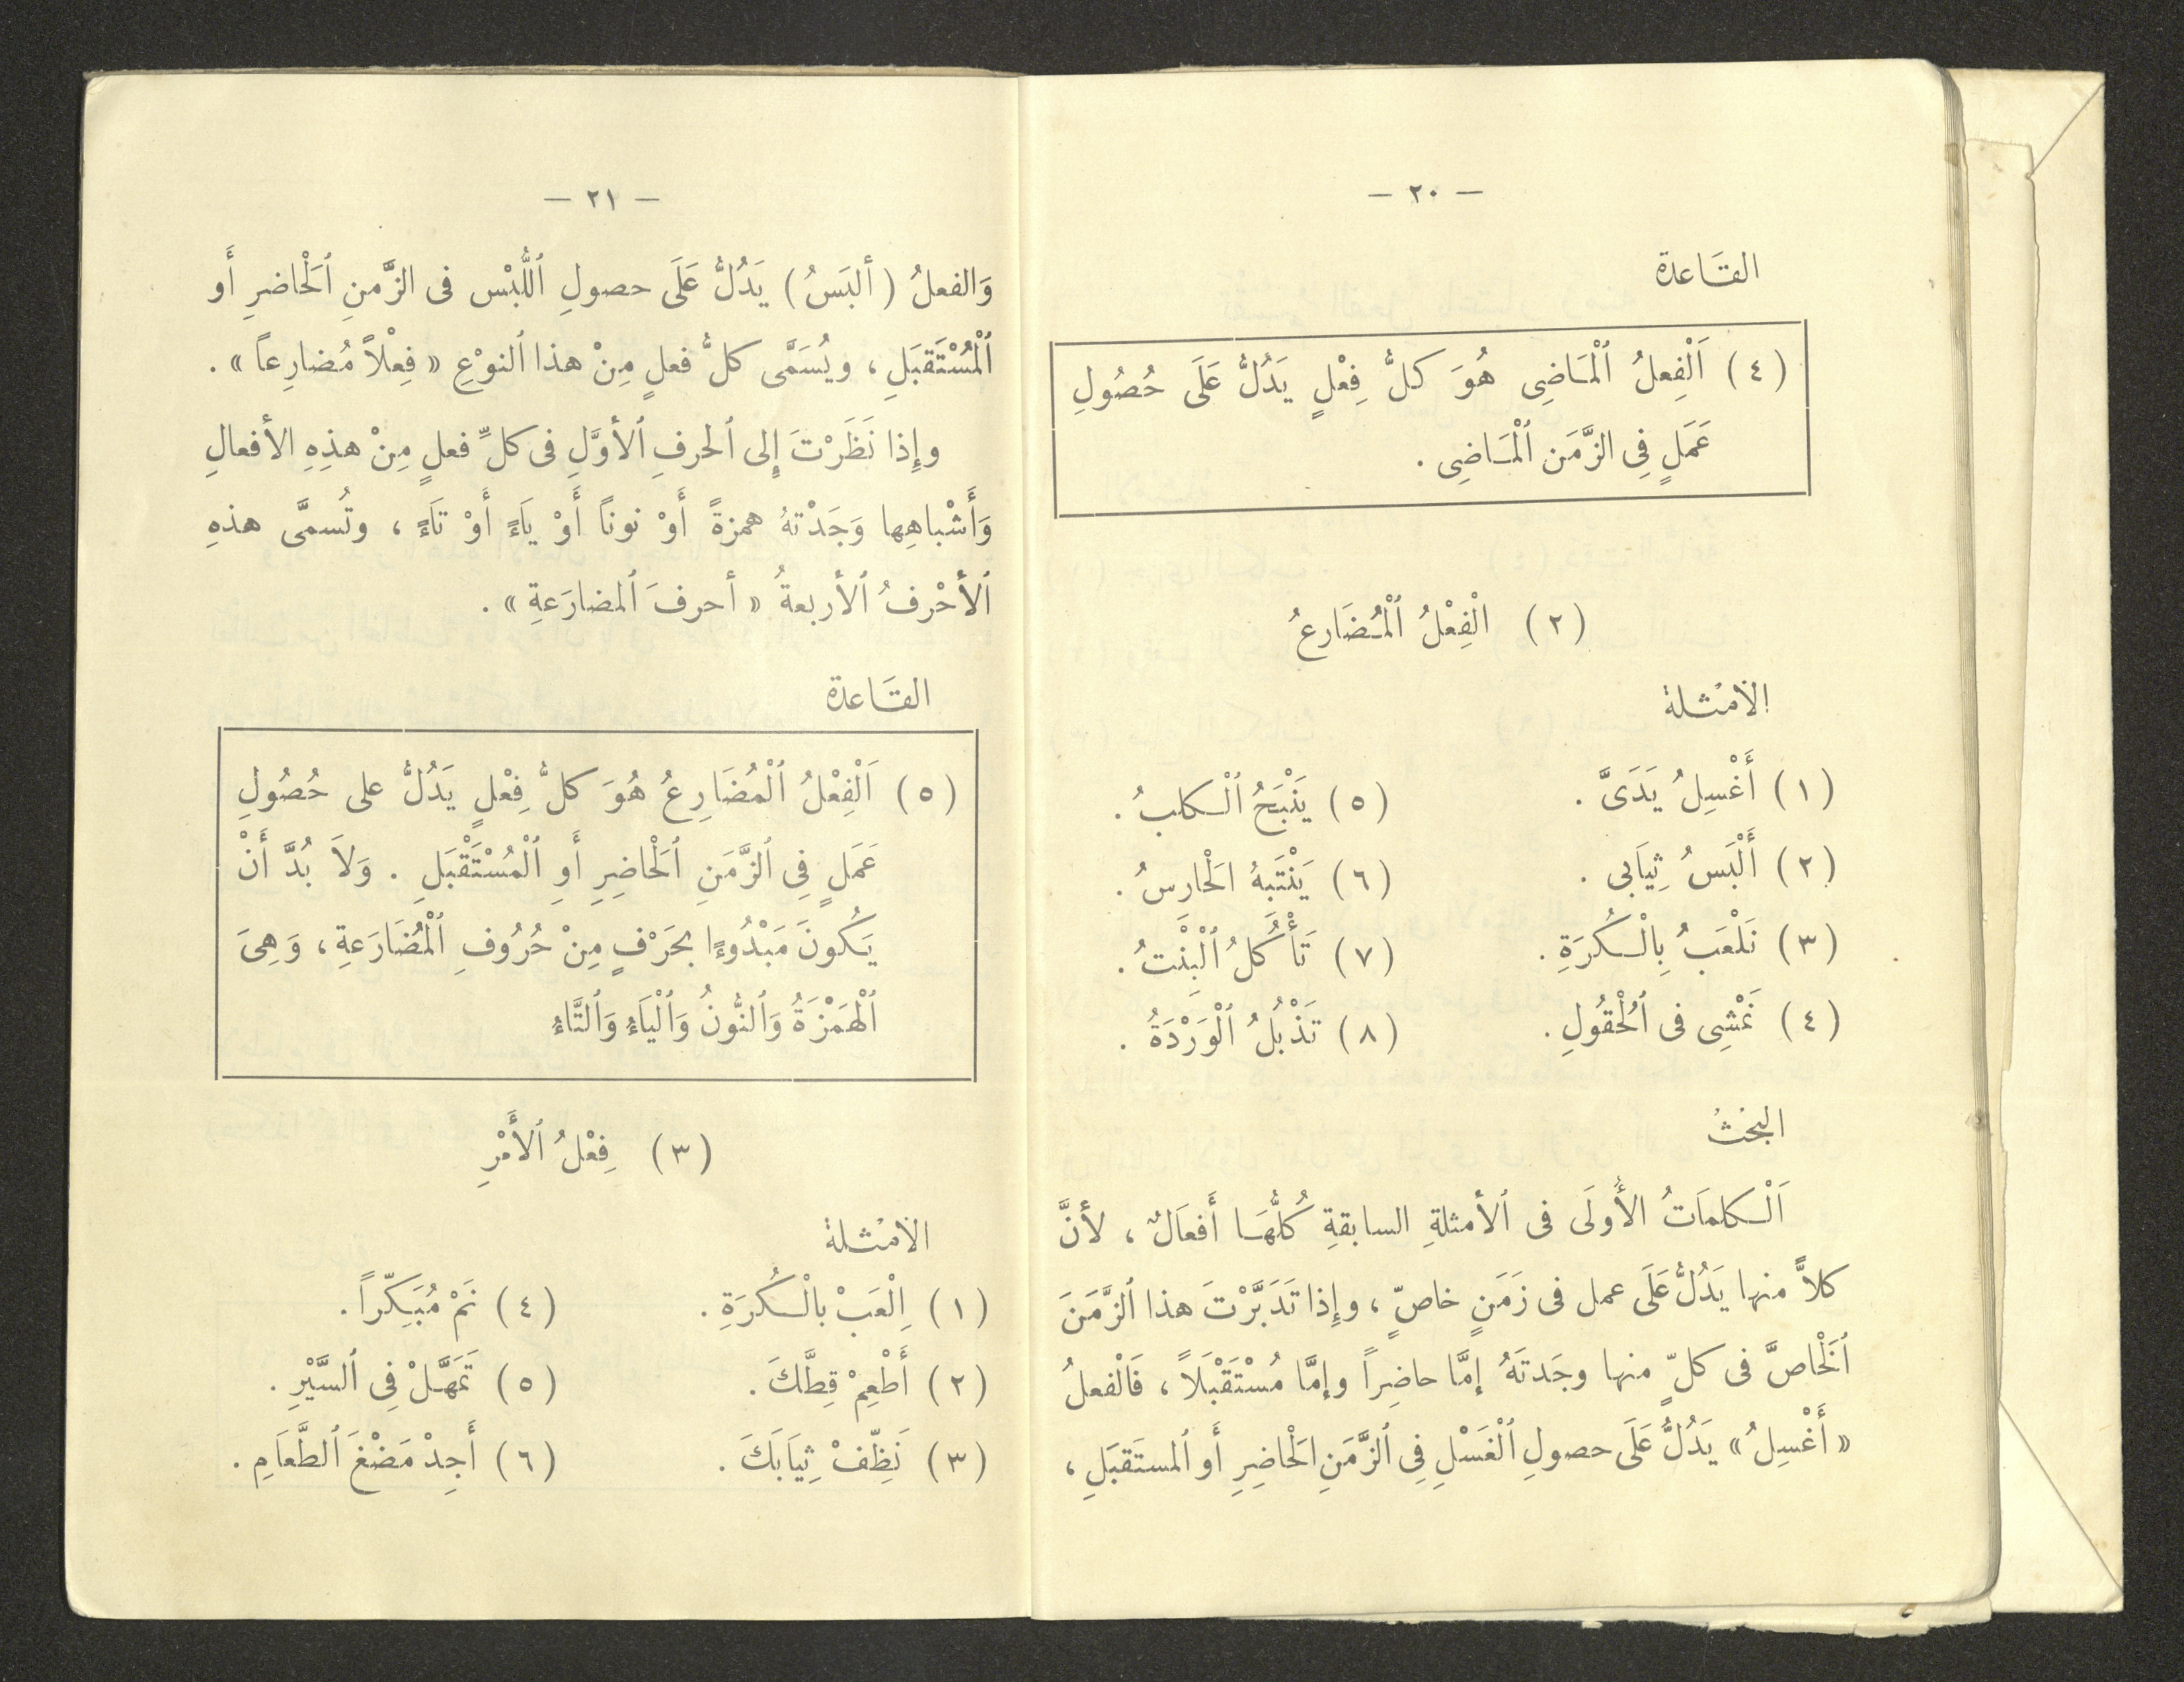 — ٢٠ —
القَاعدة
(٤) اَلْفِعلُ ٱلْمَاضِى هُوَ كلُّ فِعْلٍ يَدُلُّ عَلَى حُصُولِ
عَمَلٍ فِى الزَّمَن ٱلْمَاضِى .
(٢) الْفِعْلُ ٱلْمُضَارعُ
الأمْثلة
(١) أَغْسِلُ يَدَىَّ .
(٢) أَلْبَسُ ثِيَابى .
(٣) نَلْعَبُ بِالْكُرَةِ .
(٤) نَمْشِى فى ٱلْحُقُولِ .
(٥) يَنْبَحُ ٱلْكلبُ .
(٦) يَنْتَبهُ الْحَارسُ .
(٧) تَأْكُلُ ٱلْبِنْتُ .
(٨) تَذْبُلُ ٱلْوَرْدَةُ .
البَحْثُ
اَلْكلمَاتُ الأُولَى فى ٱلأمثلةِ السابقةِ كُلُّهَا أَفعَالٌ ، لأنَّ
كلاًّ منها يَدُلُّ عَلَى عمل فى زَمَنٍ خاصٍّ ، وإِذا تَدَبَّرْتَ هذا ٱلزَّمَنَ
ٱلْخَاصَّ فى كلٍّ منها وجَدتَهُ إمَّا حاضِراً وإمَّا مُسْتَقْبَلاً ، فَالْفعلُ
« أَغْسِلُ » يَدُلُّ عَلَى حصولِ ٱلْغَسْلِ فِى ٱلزَّمَنِ الْحَاضِرِ أَو ٱلمستَقبَلِ ،
— ٢١ —
وَالفعلُ ( ألبَسُ ) يَدُلُّ عَلَى حصولِ ٱللُّبْس فى الزَّمنِ ٱلْحَاضرِ أَو
ٱلْمُسْتَقبَلِ ، ويُسَمَّى كلُّ فعلٍ مِنْ هذا ٱلنوْعِ « فِعْلاً مُضارِعاً » .
وإِذا نَظَرْتَ إِلى ٱلحرفِ ٱلأوَّلِ فى كلِّ فعلٍ مِنْ هذِهِ الأفعالِ
وَأَشْباهِها وَجَدْتهُ همزةً أَوْ نوناً أَوْ يَاءً أَوْ تَاءً ، وتُسمَّى هذهِ
ٱلأحْرفُ ٱلأربعةُ « أحرفَ ٱلمضارَعةِ » .
القَاعدة
(٥) اَلْفِعْلُ ٱلْمُضَارِعُ هُوَ كلُّ فِعْلٍ يَدُلُّ على حُصُولِ
عَمَلٍ فِى ٱلزَّمَنِ ٱلْحَاضِرِ أَوِ ٱلْمُسْتَقْبَلِ . وَلاَ بُدَّ أَنْ
يَكُونَ مَبْدُوءًا بحَرْفٍ مِنْ حُرُوفِ ٱلْمُضَارَعةِ ، وَهِىَ
ٱلْهَمْزَةُ وَٱلنُّونُ وَٱلْيَاءُ وَٱلتَّاءُ
(٣) فِعْلُ ٱلأَمْرِ
الأمْثلة
(١) اِلْعَبْ بالْكُرَةِ .
(٢) أَطْعِمْ قِطَّكَ .
(٣) نَظِّفْ ثِيَابَكَ .
(٤) نَمْ مُبَكِّراً .
(٥) تَمَهَّلْ فِى ٱلسَّيْرِ .
(٦) أَجِدْ مَضْغَ ٱلطَّعَامِ .